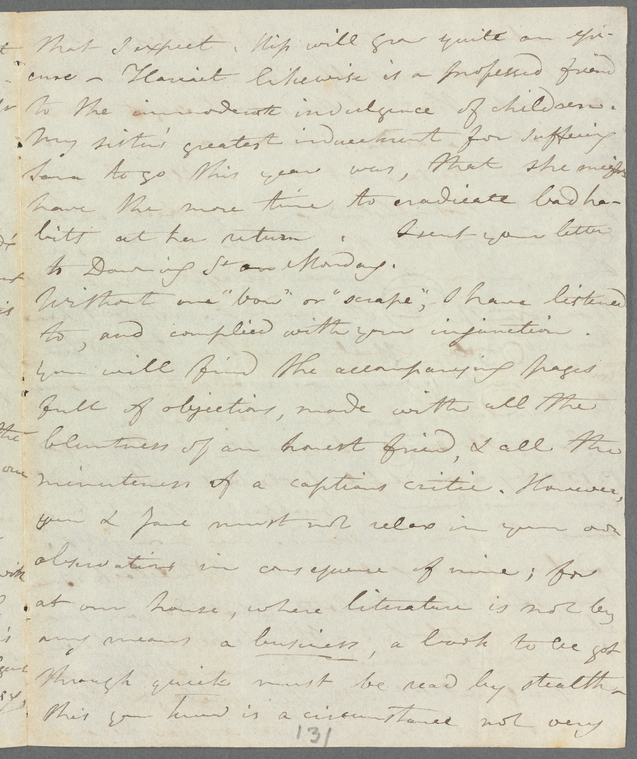 that I expect. Kip will grow quite an epi-
cure – Harriet likewise is a professed friend
to the immoderate indulgence of children.
My sister's greatest inducement for suffering
Sara to go this year was, that she might
have the more time to eradicate bad ha-
bits at her return. I sent your letter
to Downing St on Monday.
Without one "bow" or "scrape", I have listened
to, and complied with your injunction.
You will find the accompanying pages
full of objections, made with all the
bluntness of an honest friend, & all the
minuteness of a captious critic. However,
you & Jane must not relax in your own
observations in consequence of mine; for
at our house, where literature is not by
any means a business, a book to be got
through quick must be read by stealth –
this you know is a circumstance not very
131